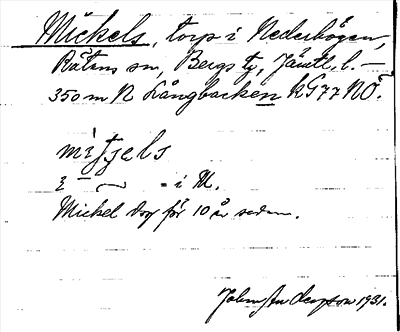 Mickels, torp i Nederhögen,
Rätans sn, Bergs tg, Jämtl. l. –
350 m N Långbacken kG77 NÖ.
mìʃʃels
i M.
Mickel dog för 10 år sedan.
John An 1931.